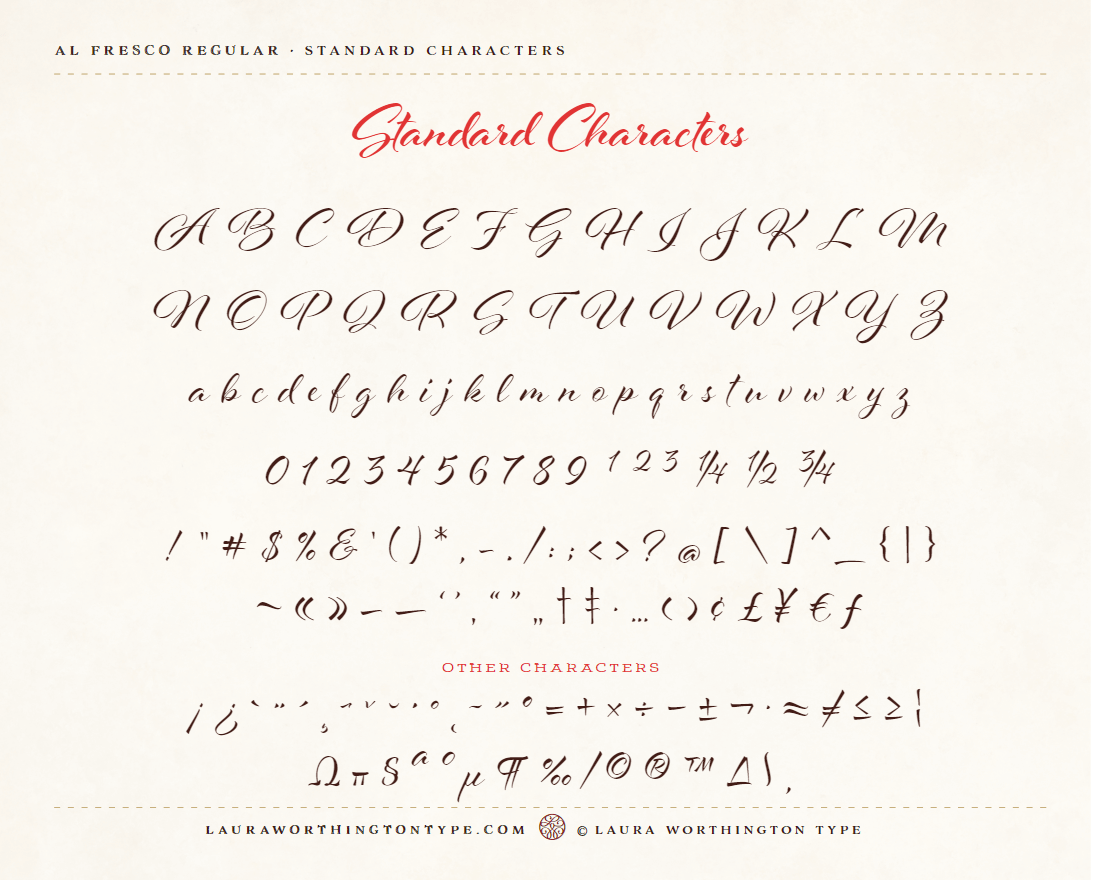 AL FRESCO REGULAR · STANDARD CHARACTERS
Standard Characters
A B C D E F G H I J K L M
N O P Q R S T U V W X Y Z
a b c d e f g h i j k l m n o p q r s t u v w x y z
0 1 2 3 4 5 6 7 8 9 ¹ ² ³ ¼ ½ ¾
! " # $ % & ' ( ) * , - . / : ; < > ? @ [ \ ] ^ _ { | }
~ « » – — ‘ ’ ‚ “ ” „ † ‡ · … ‹ › ¢ £ ¥ € ƒ
OTHER CHARACTERS
¡ ¿ ` ¨ ´ ¸ ˆ ˇ ˘ ˙ ˚ ˛ ˜ ˝ ° = + × ÷ − ± ¬ · ≈ ≠ ≤ ≥ ¦
Ω π § ª º µ ¶ ‰ ⁄ © ® ™ ∆ ∫ ,
LAURAWORTHINGTONTYPE.COM © LAURA WORTHINGTON TYPE